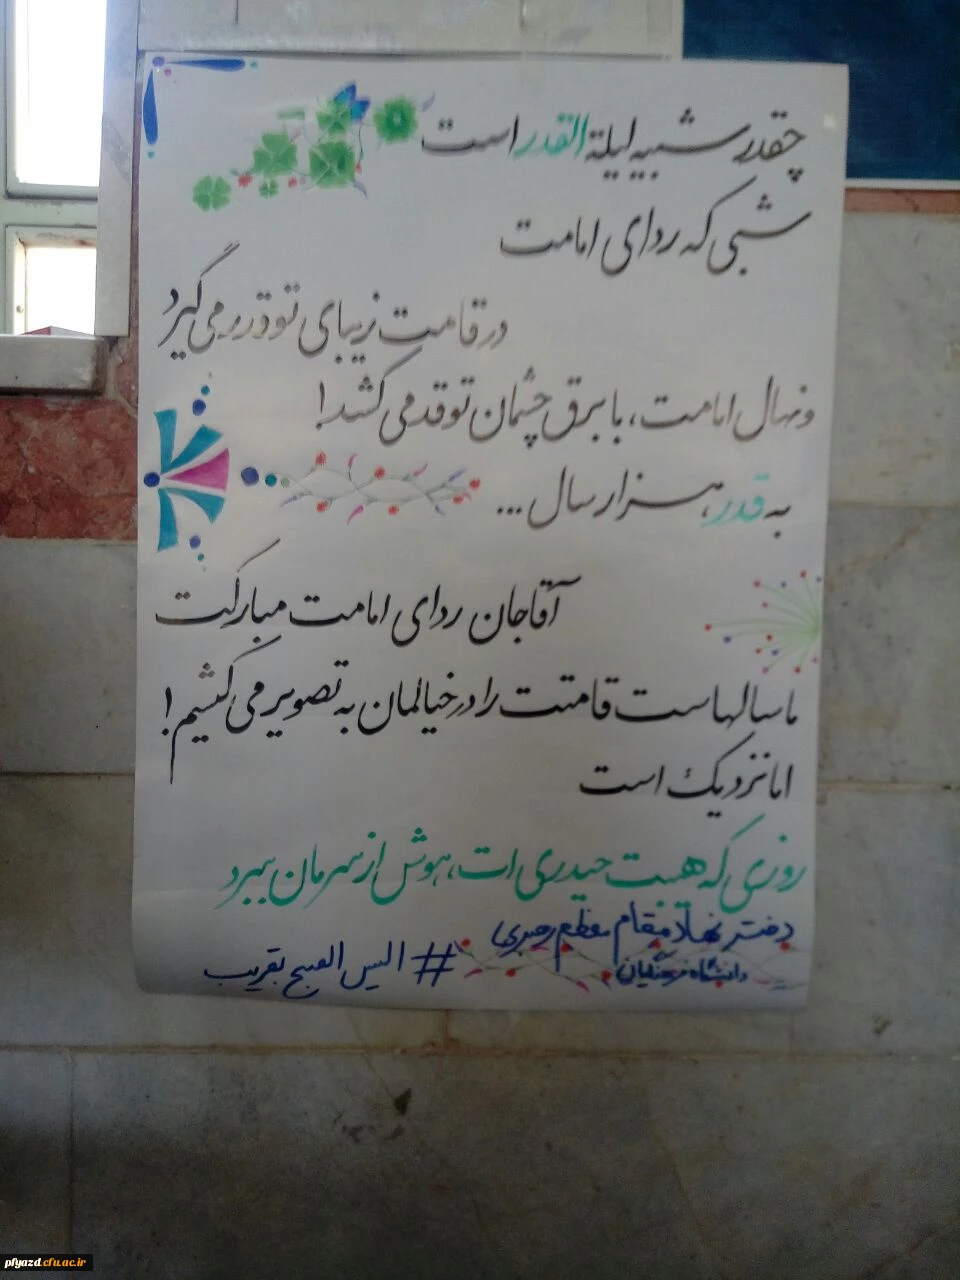 چقدر شبیه لیلة القدر است
شبی که ردای امامت
در قامت زیبای تو قدر می گیرد
و نهال امامت، با برق چشمان تو قد می کشد!
به قدر، هزار سال ...
آقاجان ردای امامت مبارکت
ما سالهاست قامتت را در خیالمان به تصویر می کشیم!
اما نزدیک است
روزی که هیبت حیدری ات، هوش از سرمان ببرد
دفتر نهاد مقام معظم رهبری
دانشگاه فرهنگیان
# الیس الصبح بقریب
pfyazd.cfu.ac.ir